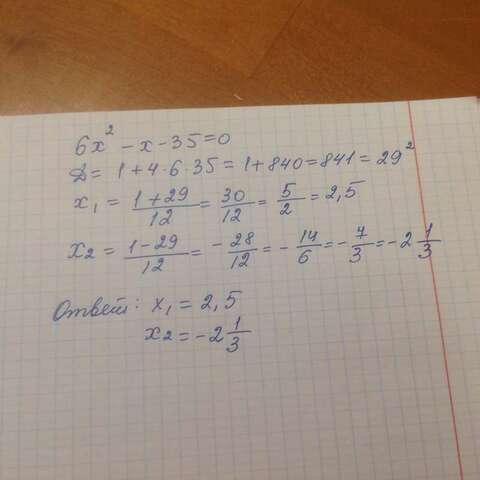 6x² - x - 35 = 0
Д = 1 + 4 · 6 · 35 = 1 + 840 = 841 = 29²
x₁ = (1 + 29)/12 = 30/12 = 5/2 = 2,5
x₂ = (1 - 29)/12 = -28/12 = -14/6 = -7/3 = -2 1/3
Ответ: x₁ = 2,5
x₂ = -2 1/3